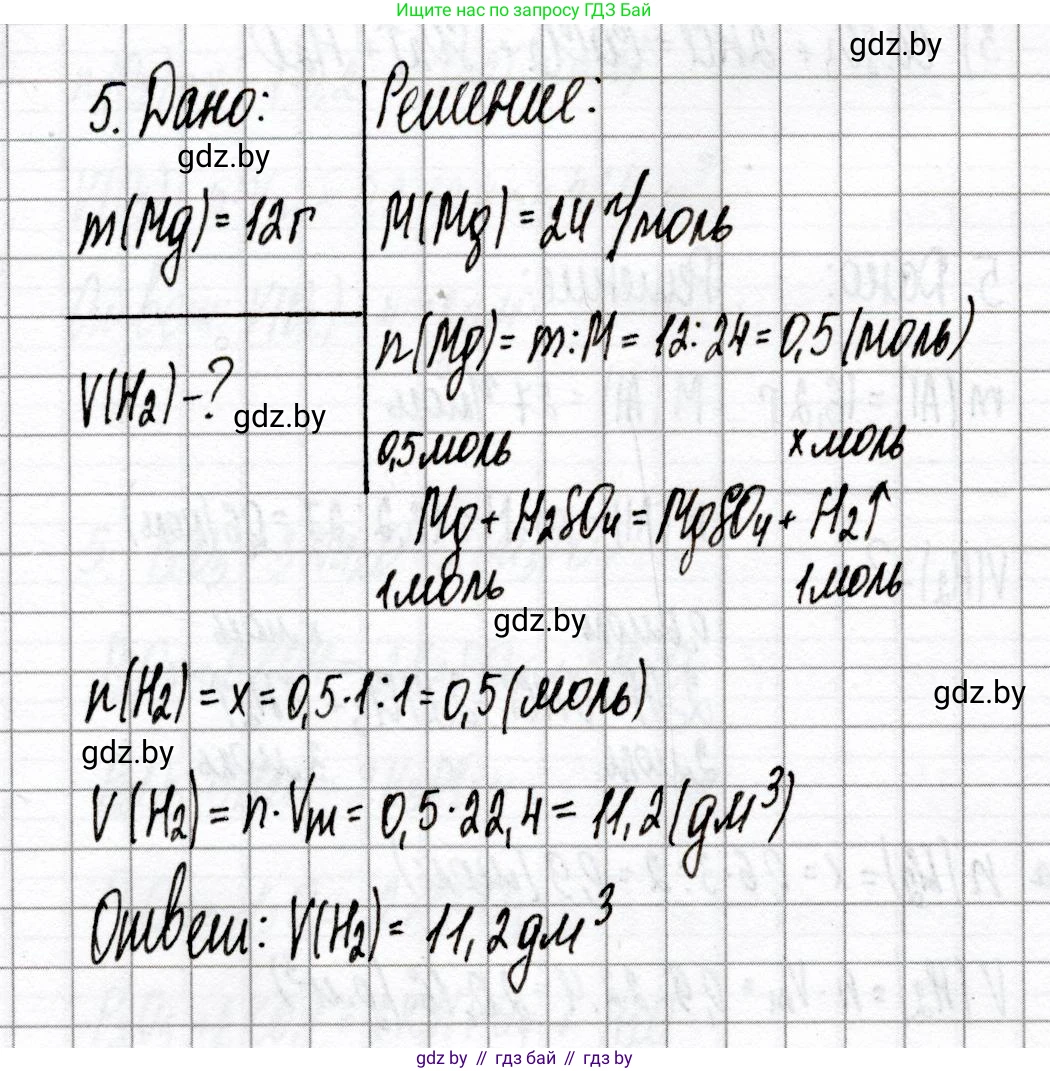 Ищите нас по запросу ГДЗ Бай
gdz.by
5. Дано:
Решение:
gdz.by
m(Mg) = 12г
M(Mg) = 24 г/моль
n(Mg) = m:M = 12:24 = 0,5 (моль)
V(H₂) - ?
gdz.by
0,5моль
x моль
Mg + H₂SO₄ = MgSO₄ + H₂↑
1моль
1моль
gdz.by
n(H₂) = x = 0,5·1:1 = 0,5 (моль)
gdz.by
gdz.by
V(H₂) = n·Vm = 0,5·22,4 = 11,2 (дм³)
Ответ: V(H₂) = 11,2 дм³
gdz.by // гдз бай // гдз by